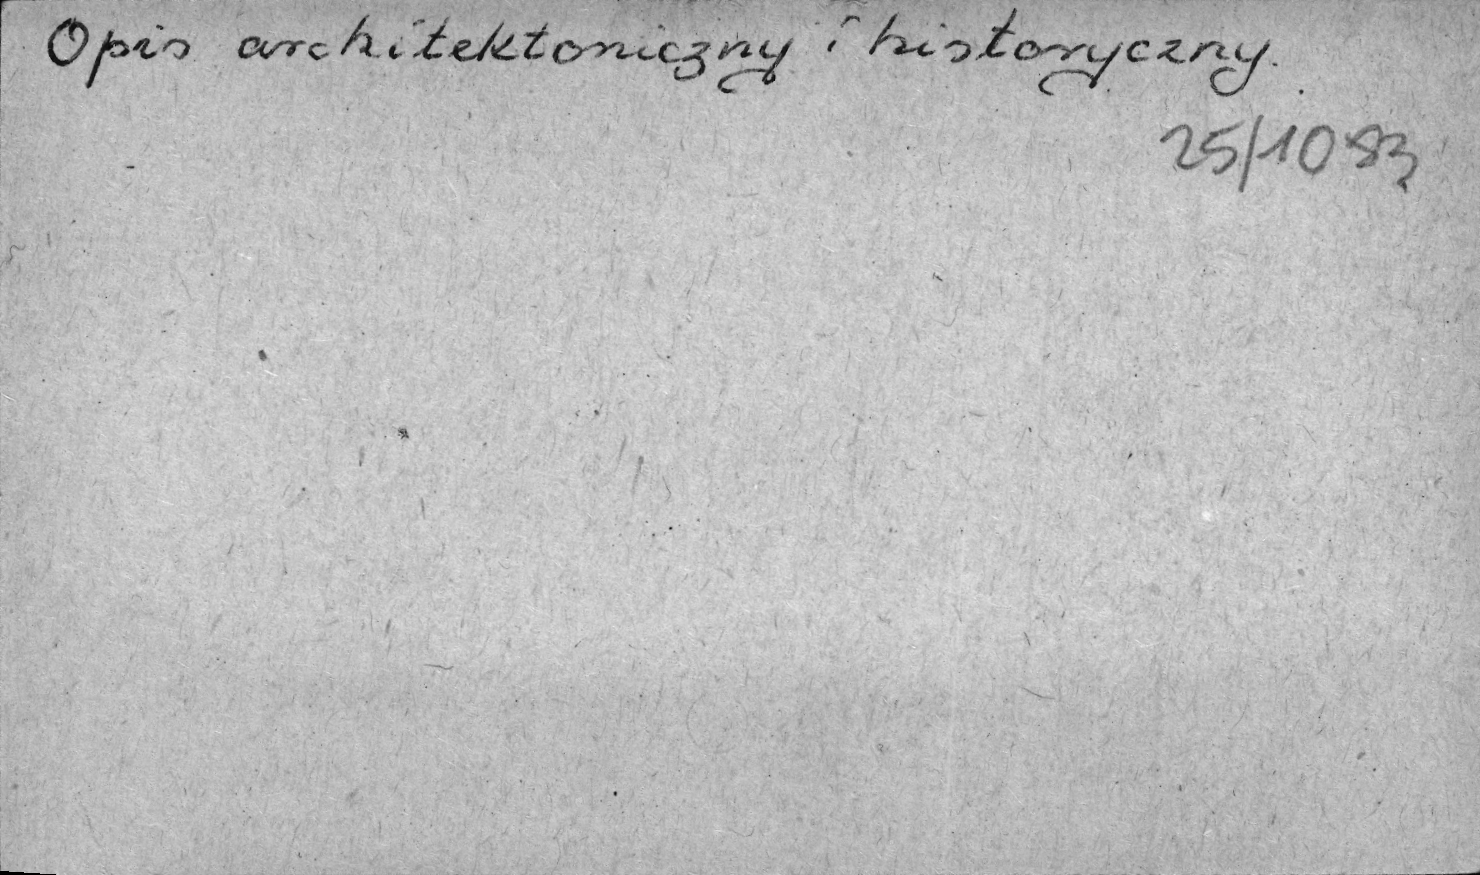 Opis architektoniczny i historyczny.
25/10 83